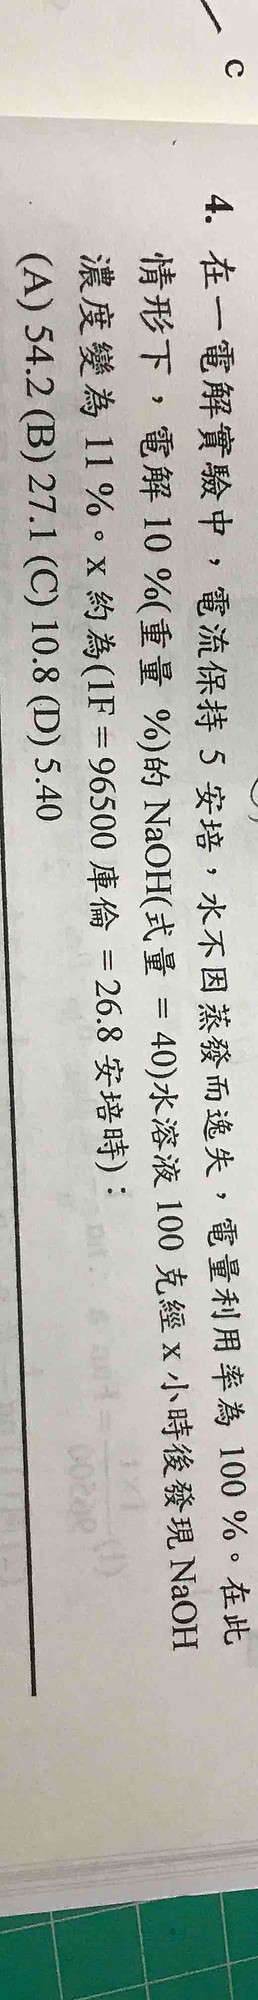 c
4. 在一電解實驗中，電流保持 5 安培，水不因蒸發而逸失，電量利用率為 100 %。在此
情形下，電解 10 %(重量 %)的 NaOH(式量 = 40)水溶液 100 克經 x 小時後發現 NaOH
濃度變為 11 %。x 約為(1F = 96500 庫倫 = 26.8 安培時)：
(A) 54.2 (B) 27.1 (C) 10.8 (D) 5.40